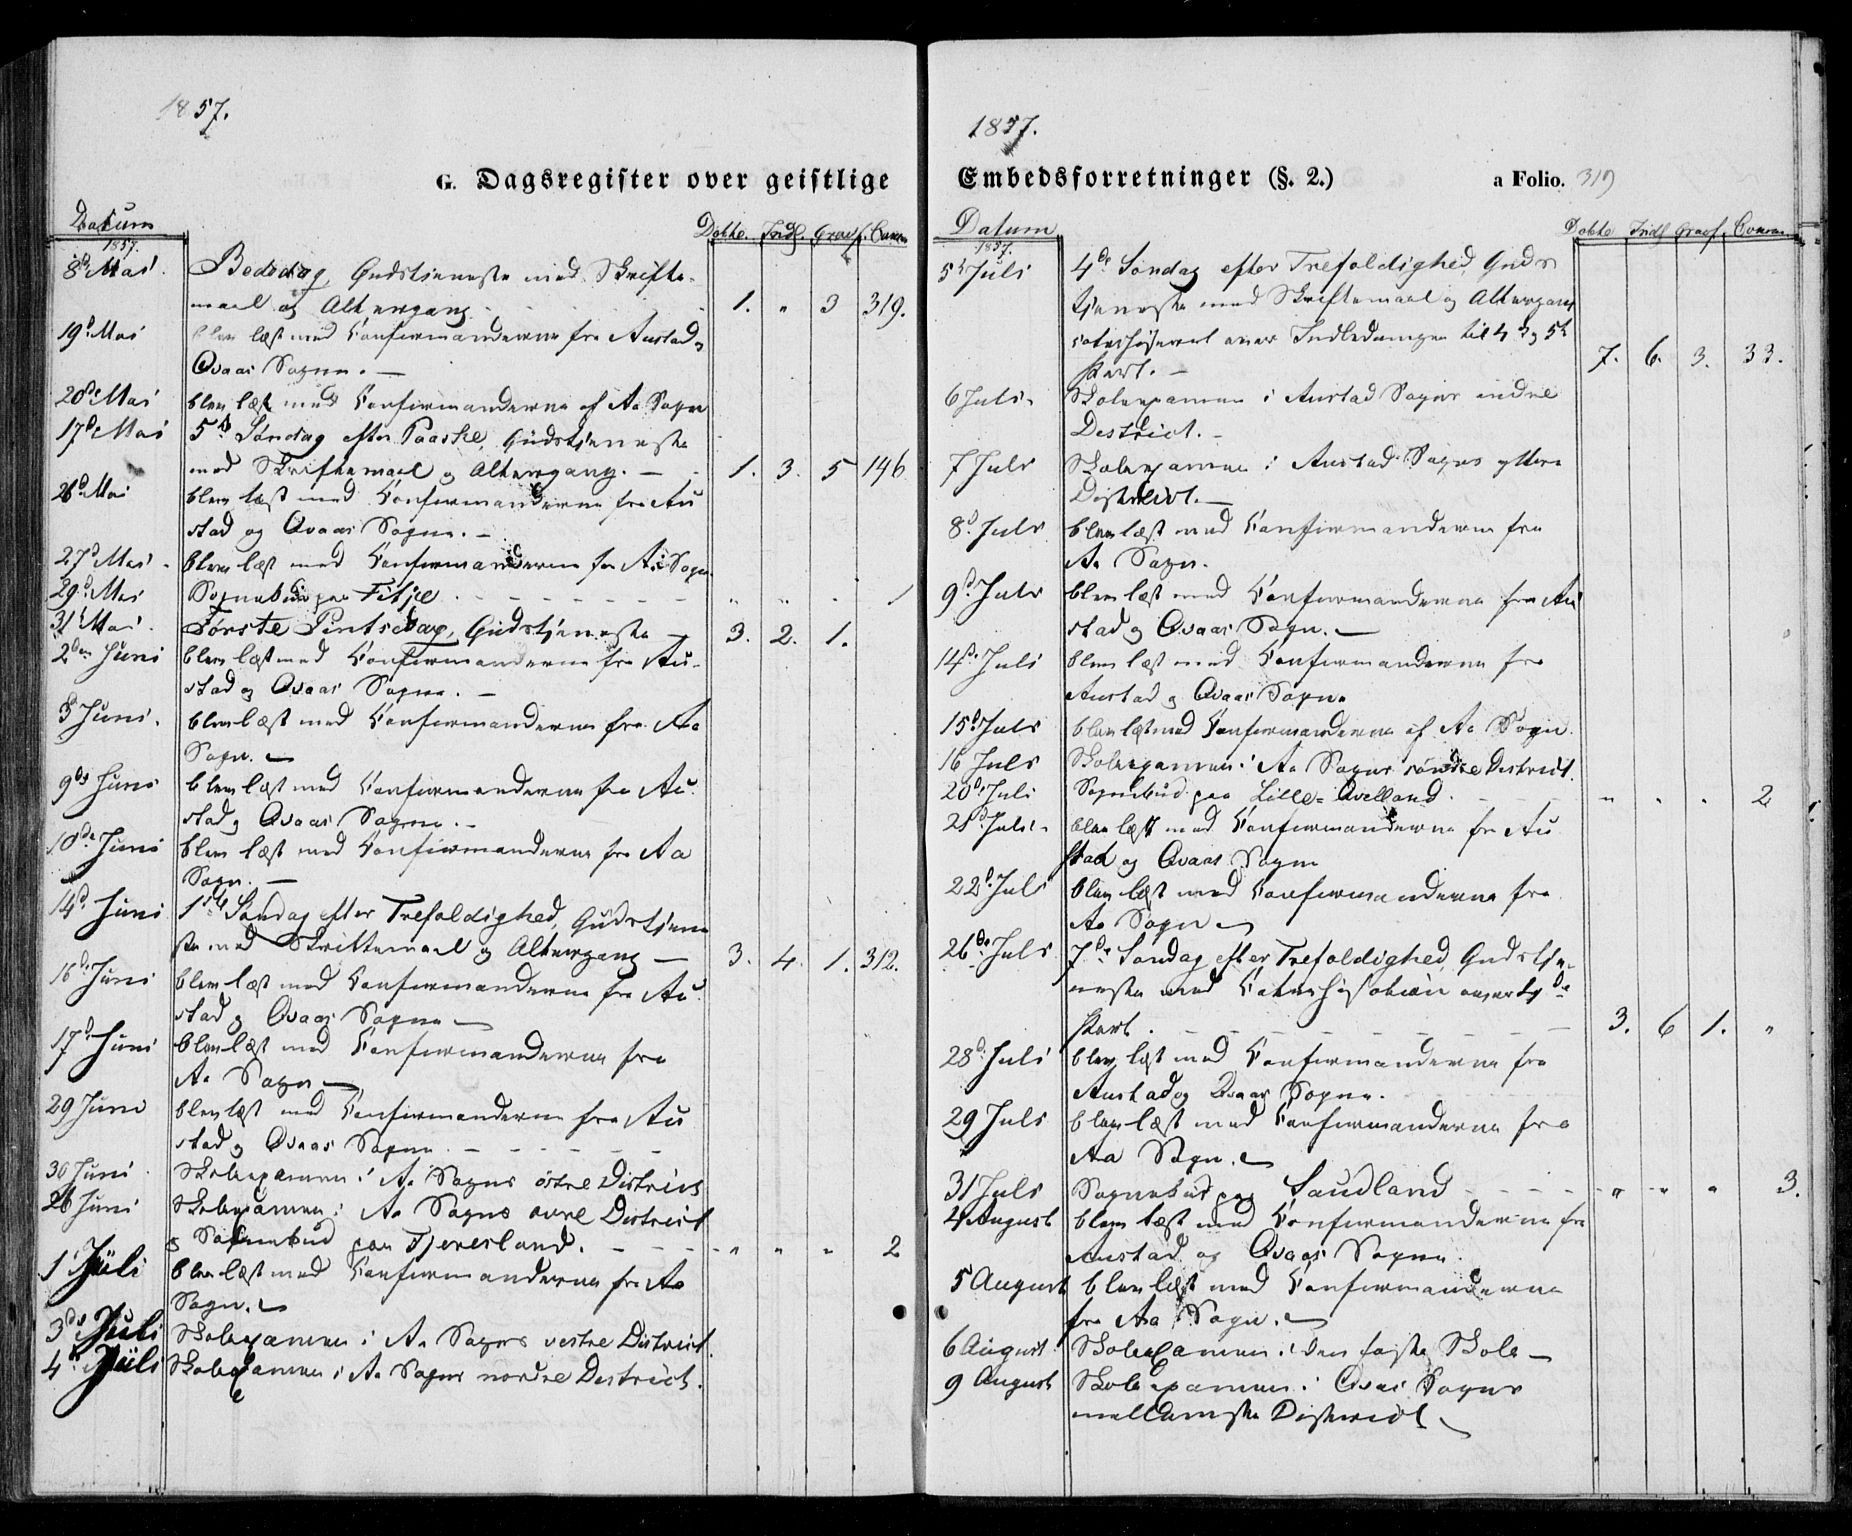 1857.
G. Dagsregister over geistlige
Datum Døbte. Indl. Gravf. Comm.
1857.
8de Mai. Bededag, Gudstjeneste med Skrifte-
maal og Altergang 1. " 3 319.
19de Mai blev læst med Confirmanderne fra Austad
Qvaas Sogne. —
20de Mai blev læst med Confirmanderne af Aa Sogn
17de Mai 5te Søndag efter Paaske, Gudstjeneste
med Skriftemaal og Altergang. — 1. 3. 5 146
26de Mai blev læst med Confirmanderne fra Au
stad og Qvaas Sogne. —
27de Mai blev læst med Confirmanderne fra Aa Sogn
29de Mai Sognebud paa Fitje - - - " " " 1
31te Mai. Første Pintsedag, Gudstjeneste — 3. 2. 1.
2den Juni blev læst med Confirmanderne fra Au-
stad og Qvaas Sogne. —
3 Juni. blev læst med Confirmanderne fra Aa
Sogn. —
9de Juni blev læst med Confirmanderne fra Au
stad og Qvaas Sogne. —
10de Juni blev læst med Confirmanderne fra Aa
Sogn. —
14de Juni 1ste Søndag efter Trefoldighed, Gudstjene
ste med Skriftemaal og Altergang — 3. 4. 1. 312.
16de Juni blev læst med Confirmanderne fra Au
stad og Qvaas Sogne —
17de Juni blev læst med Confirmanderne fra
Aa Sogn —
29 Juni blev læst med Confirmanderne fra Au
stad og Qvaas Sogne - - - -
30 Juni Skoleexamen i Aa Sogns østre District
26 Juni Skoleexamen i Aa Sogns øvre District
og Sognebud paa Tjersland. - - - " " " 2
1 Juli blev læst med Confirmanderne fra Aa
Sogn. —
3de Juli Skoleexamen i Aa Sogns vestre District.
4de Juli Skoleexamen i Aa Sogns nordre District.
1857.
Embedsforretninger (§. 2.) a Folio. 319
Datum Døbte Indl Gravf. Comm
1857.
5te Juli 4de Søndag efter Trefoldighed, Guds
tjeneste med Skriftemaal og Altergang
catechiseret over Indledningen til 4de og 5te
Part. — 7. 6. 3. 33.
6 Juli. Skoleexamen i Austad Sogns indre
District. —
7 Juli Skoleexamen i Austad Sogns yttre
District. —
8de Juli blev læst med Confirmanderne fra
Aa Sogn.
9de Juli blev læst med Confirmanderne fra Au
stad og Qvaas Sogn. —
14de Juli blev læst med Confirmanderne fra
Austad og Qvaas Sogne
15de Juli blev læst med Confirmanderne af Aa Sogn.
16 Juli Skoleexamen i Aa Sogns søndre District.
20de Juli Sognebud paa Lille-Qvelland. - - - " " " 2
21de Juli. blev læst med Confirmanderne fra Au
stad og Qvaas Sogne
22de Juli blev læst med Confirmanderne fra
Aa Sogn —
26de Juli 7de Søndag efter Trefoldighed, Gudstje-
neste med Catechisation over 4de
Part. - - - 3. 6 1. "
28de Juli blev læst med Confirmanderne fra
Austad og Qvaas Sogne.
29 Juli blev læst med Confirmanderne fra
Aa Sogn. —
31 Juli Sognebud paa Saudland - - - " " " 3.
4 August blev læst med Confirmanderne fra
Austad og Qvaas Sogne
5 August blev læst med Confirmanderne
fra Aa Sogn. —
6 August Skoleexamen i den faste Skole —
9 August Skoleexamen i Qvaas Sogns
mellemste District —